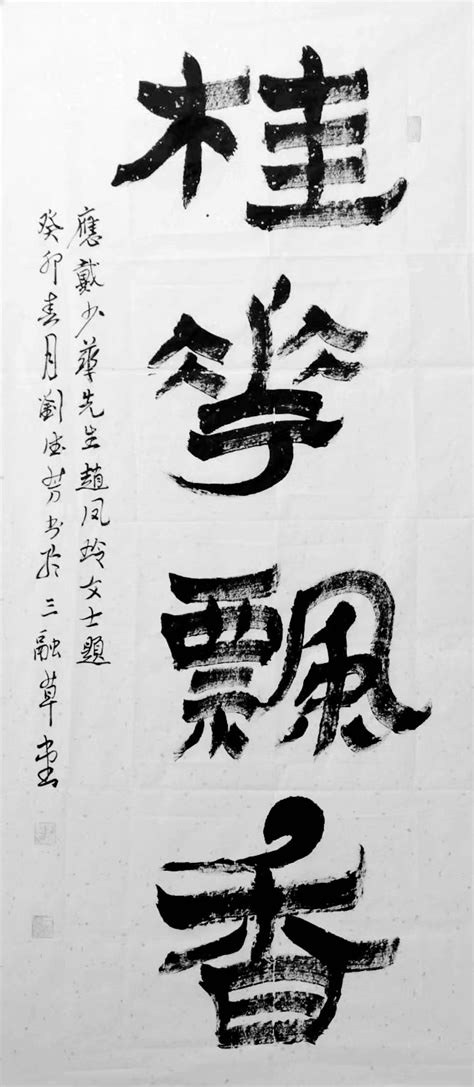 桂花飄香
應戴少華先生趙凤玲女士題
癸卯春月劉德芳书於三融草堂